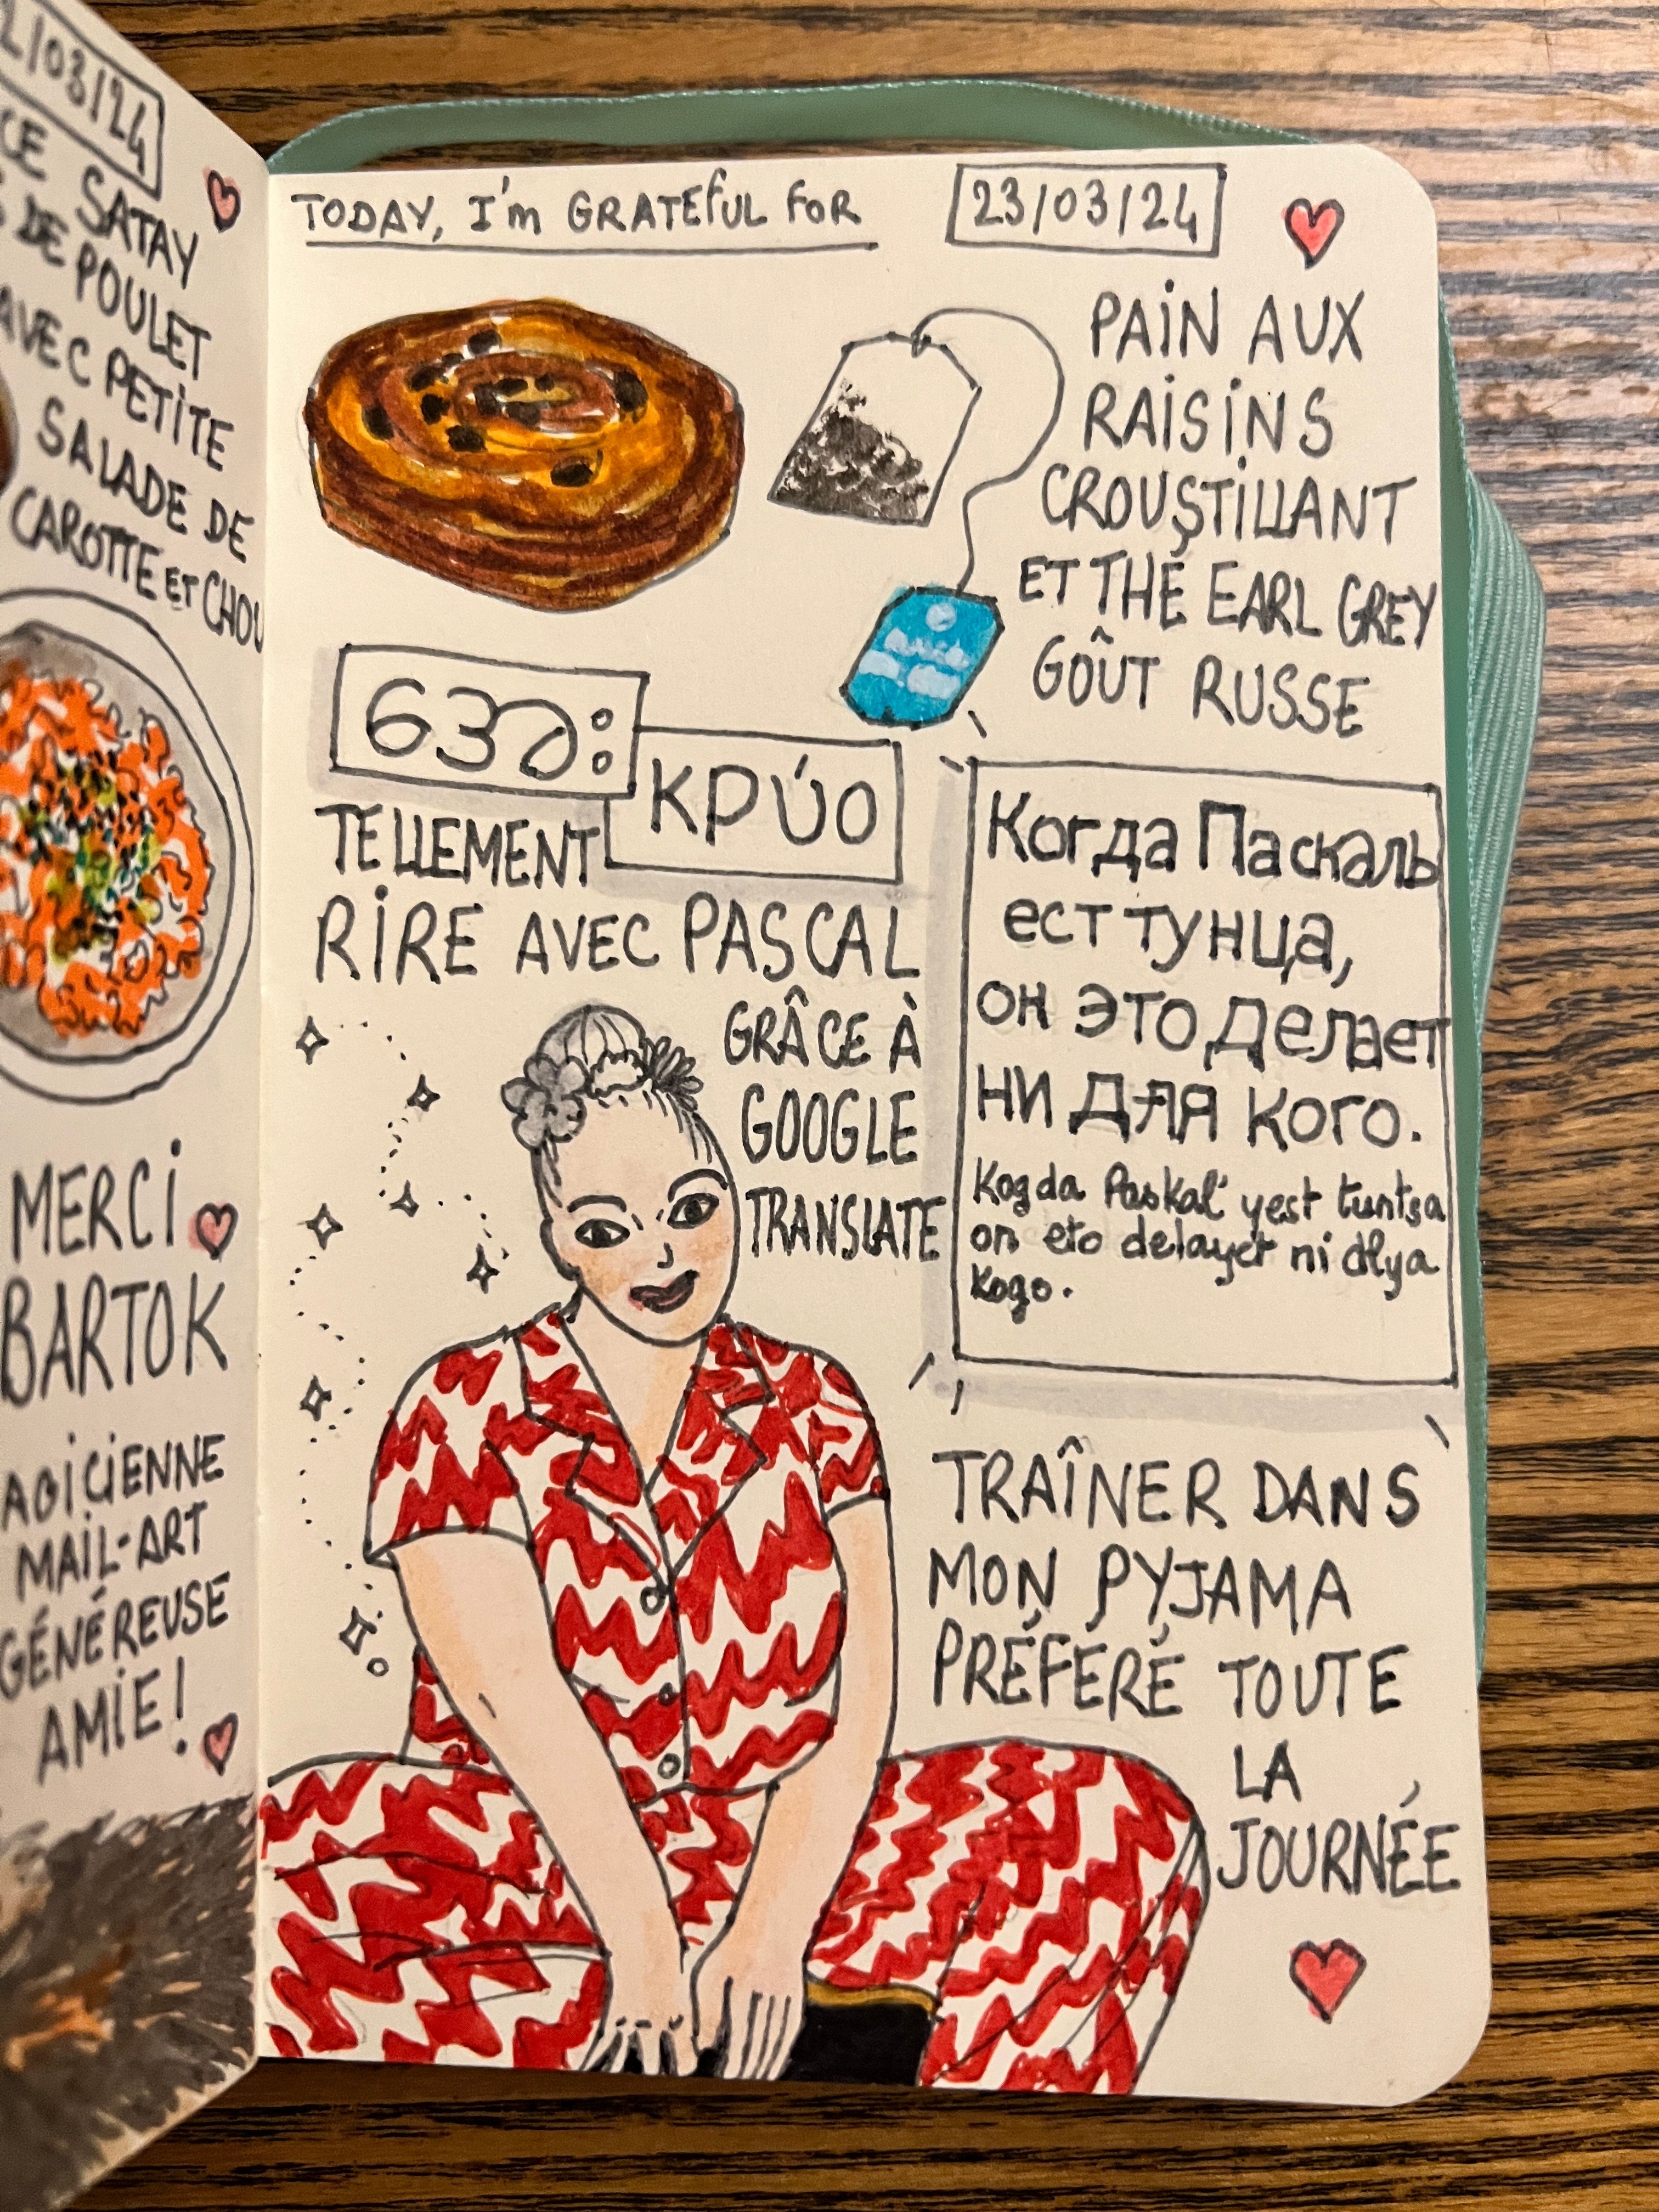 /03/24
CE SATAY
DE POULET
AVEC PETITE
SALADE DE
CAROTTE ET CHOU
MERCI
BARTOK
AGICIENNE
MAIL-ART
GÉNÉREUSE
AMIE!
TODAY, I'm GRATEFUL FOR
23/03/24
PAIN AUX
RAISINS
CROUSTILLANT
ET THÉ EARL GREY
GOÛT RUSSE
အေး
κρύο
TELLEMENT
RIRE AVEC PASCAL
GRÂCE À
GOOGLE
TRANSLATE
Когда Паскаль
ест тунца,
он это делает
ни для кого.
Kogda Paskal' yest tuntsa
on eto delayet ni dlya
kogo.
TRAÎNER DANS
MON PYJAMA
PRÉFÉRÉ TOUTE
LA
JOURNÉE